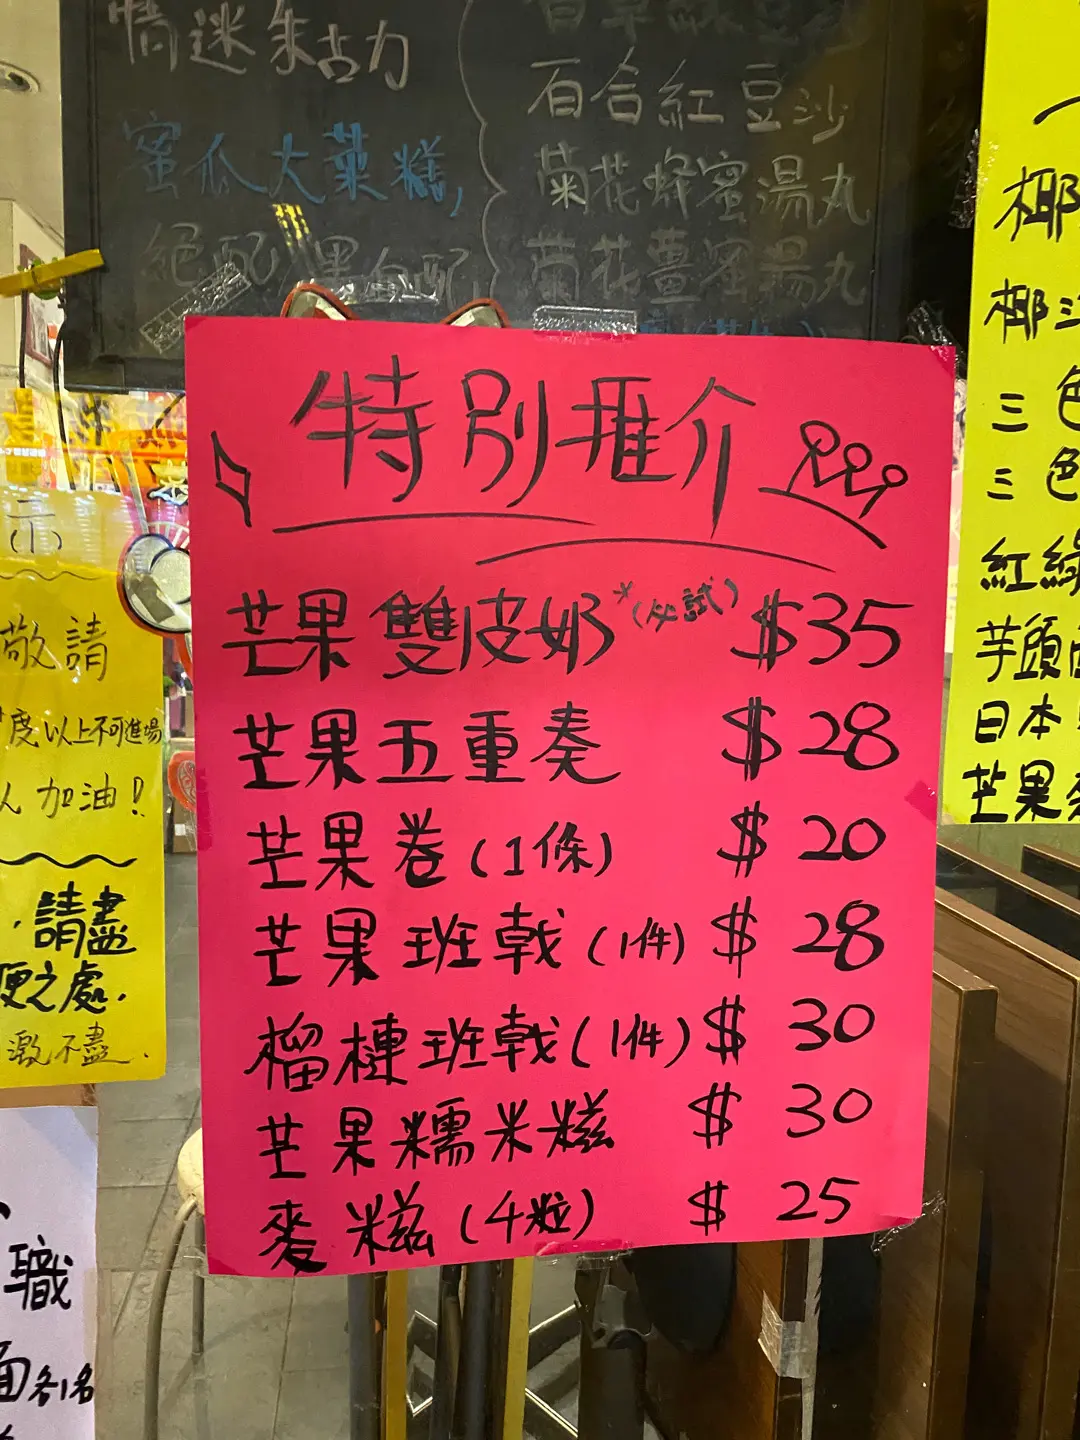 情迷朱古力
蜜瓜大菜糕,
絕配黑白配
百合紅豆沙
菊花蜂蜜湯丸
菊花薑蜜湯丸
特別推介
芒果雙皮奶*(必試) $35
芒果五重奏 $28
芒果卷(1條) $20
芒果班戟(1件) $28
榴槤班戟(1件) $30
芒果糯米糍 $30
麥糍(4粒) $25
示
敬請
度以上不可進場
加油!
請盡
便之處.
激不盡.
職
面各1名
椰
椰
三色
三色
紅綠
芋頭
日本
芒果